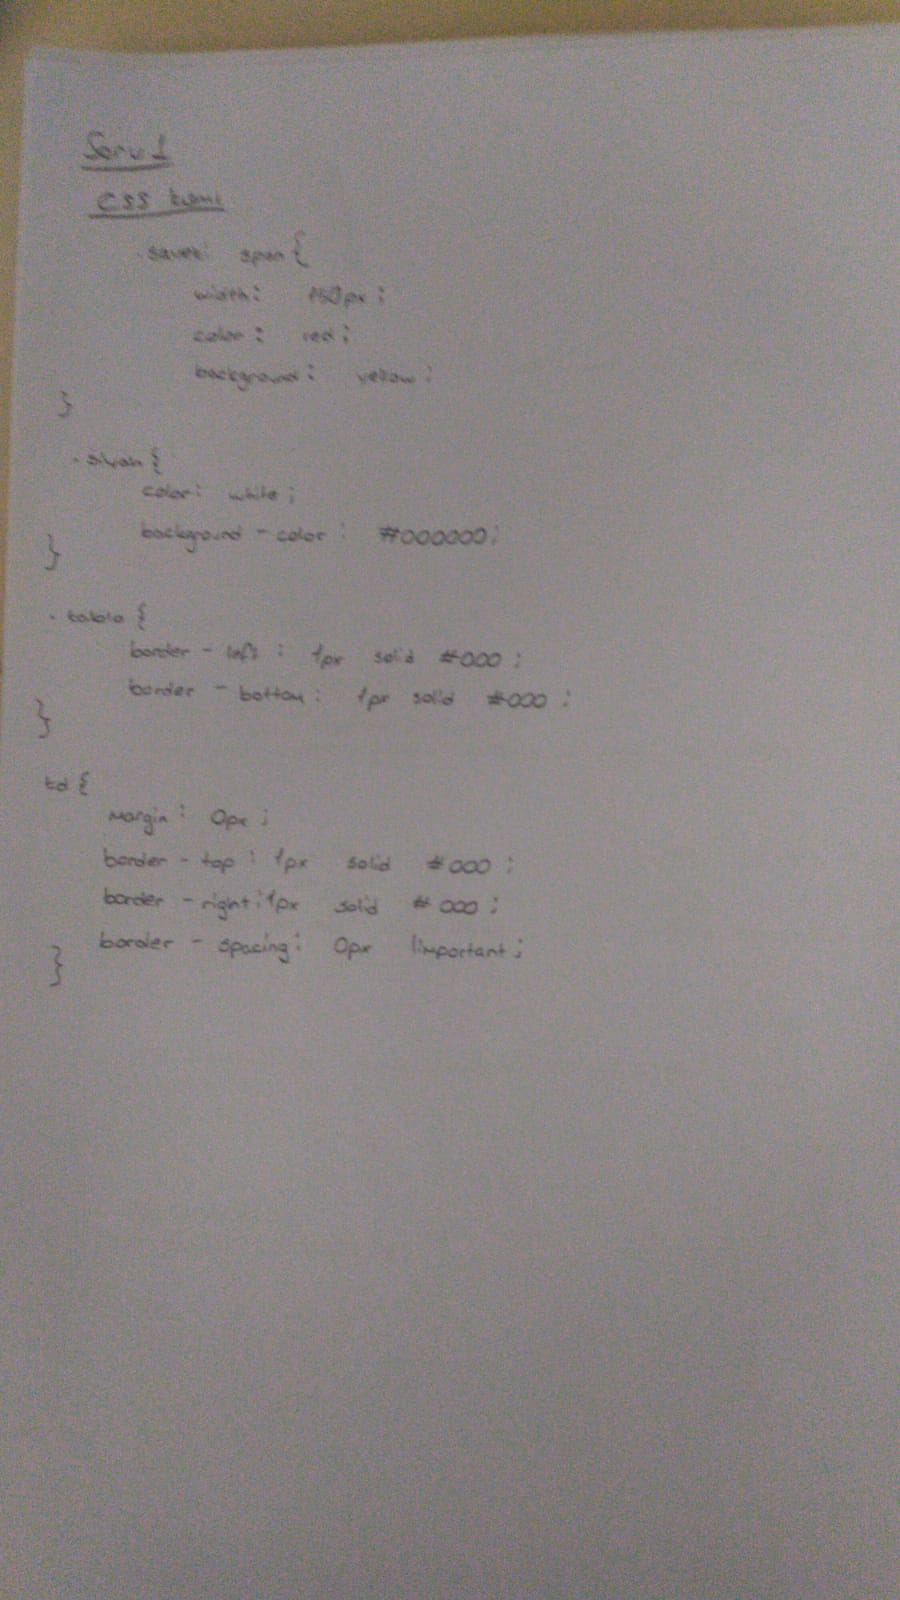 Soru 1
CSS kısmı
span {
width: 150px;
color: red;
background: yellow;
}
.siyah {
color: white;
background-color: #000000;
}
.tablo {
border-left: 1px solid #000;
border-bottom: 1px solid #000;
}
td {
margin: 0px;
border-top: 1px solid #000;
border-right: 1px solid #000;
border-spacing: 0px !important;
}